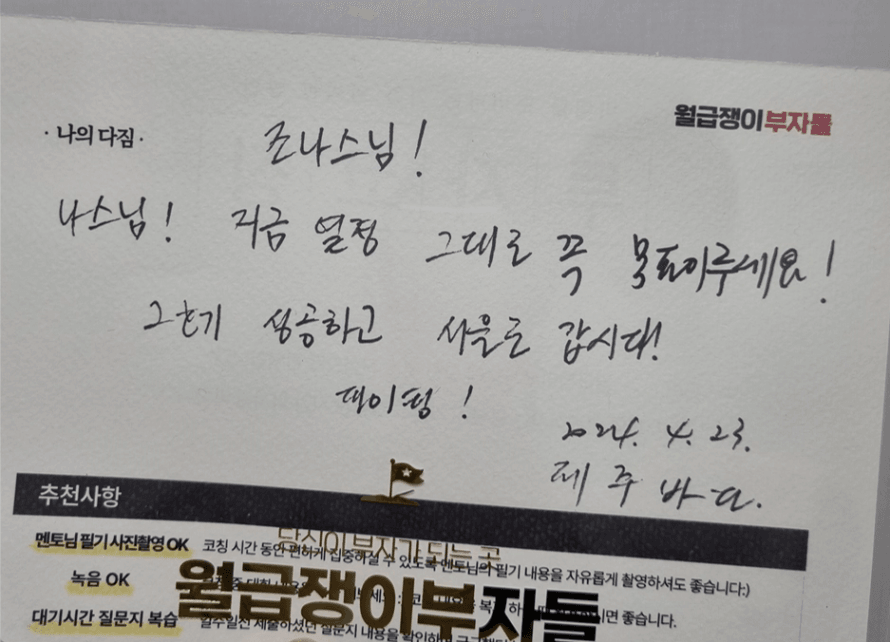 월급쟁이부자들
· 나의 다짐 ·
존나스님!
나스님! 지금 열정 그대로 꼭 목표이루세요!
그렇기 성공하고 서울로 갑시다!
파이팅!
2024. 4. 23.
제주바다.
추천사항
당신이 부자가 되는 곳
멘토님 필기 사진촬영 OK 코칭 시간 동안 편하게 집중하실 수 있도록 멘토님의 필기 내용을 자유롭게 촬영하셔도 좋습니다:)
녹음 OK
월급쟁이부자들
대기시간 질문지 복습